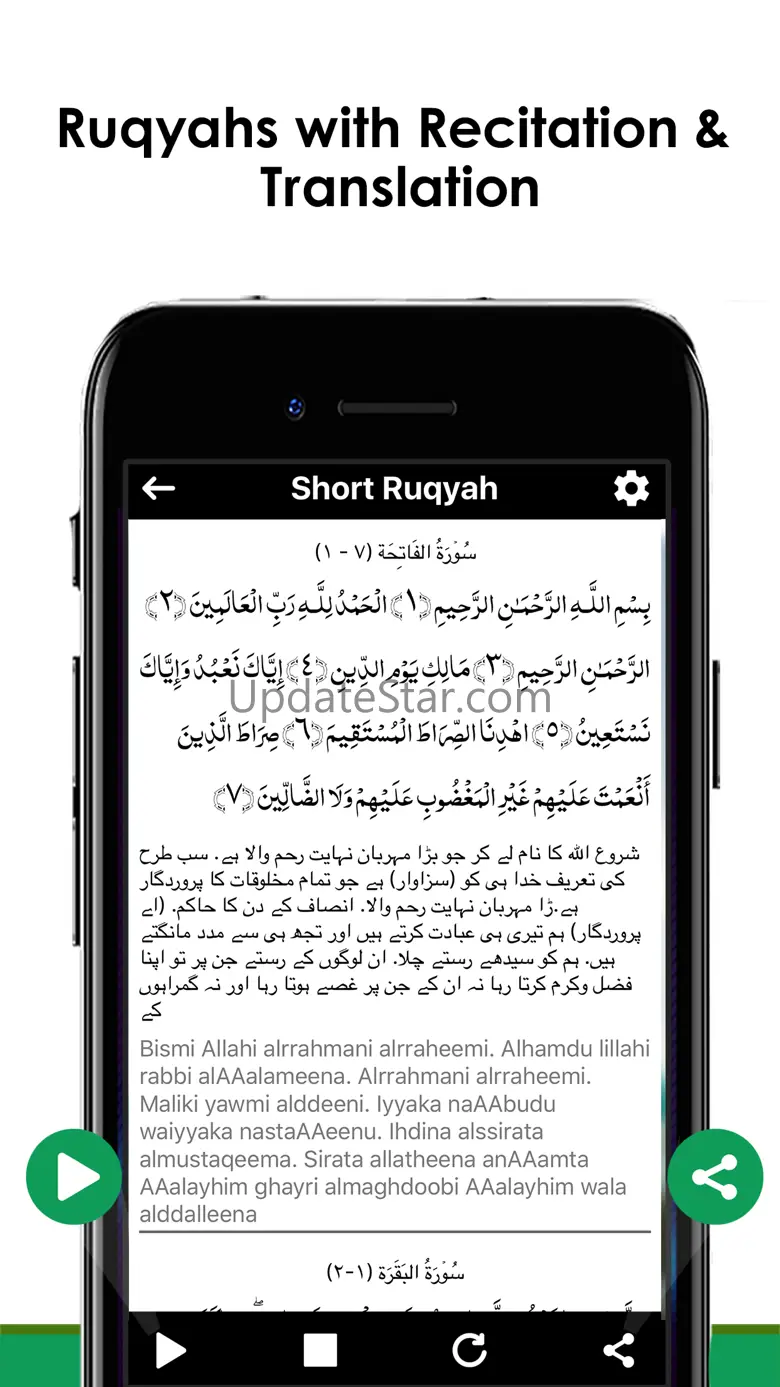 Ruqyahs with Recitation &
Translation
Short Ruqyah
سُوْرَةُ الفَاتِحَة (٧ - ١)
بِسْمِ اللَّـهِ الرَّحْمَـٰنِ الرَّحِيمِ ﴿١﴾ الْحَمْدُ لِلَّـهِ رَبِّ الْعَالَمِينَ ﴿٢﴾
الرَّحْمَـٰنِ الرَّحِيمِ ﴿٣﴾ مَالِكِ يَوْمِ الدِّينِ ﴿٤﴾ إِيَّاكَ نَعْبُدُ وَإِيَّاكَ
UpdateStar.com
نَسْتَعِينُ ﴿٥﴾ اهْدِنَا الصِّرَاطَ الْمُسْتَقِيمَ ﴿٦﴾ صِرَاطَ الَّذِينَ
أَنْعَمْتَ عَلَيْهِمْ غَيْرِ الْمَغْضُوبِ عَلَيْهِمْ وَلَا الضَّالِّينَ ﴿٧﴾
شروع الله کا نام لے کر جو بڑا مہربان نہایت رحم والا ہے. سب طرح
کی تعریف خدا ہی کو (سزاوار) ہے جو تمام مخلوقات کا پروردگار
ہے.ڑا مہربان نہایت رحم والا. انصاف کے دن کا حاکم. (اے
پروردگار) ہم تیری ہی عبادت کرتے ہیں اور تجھ ہی سے مدد مانگتے
ہیں. ہم کو سیدھے رستے چلا. ان لوگوں کے رستے جن پر تو اپنا
فضل وکرم کرتا رہا نہ ان کے جن پر غصے ہوتا رہا اور نہ گمراہوں
کے
Bismi Allahi alrrahmani alrraheemi. Alhamdu lillahi
rabbi alAAalameena. Alrrahmani alrraheemi.
Maliki yawmi alddeeni. Iyyaka naAAbudu
waiyyaka nastaAAeenu. Ihdina alssirata
almustaqeema. Sirata allatheena anAAamta
AAalayhim ghayri almaghdoobi AAalayhim wala
alddalleena
سُوْرَةُ البَقَرَة (١-٢)